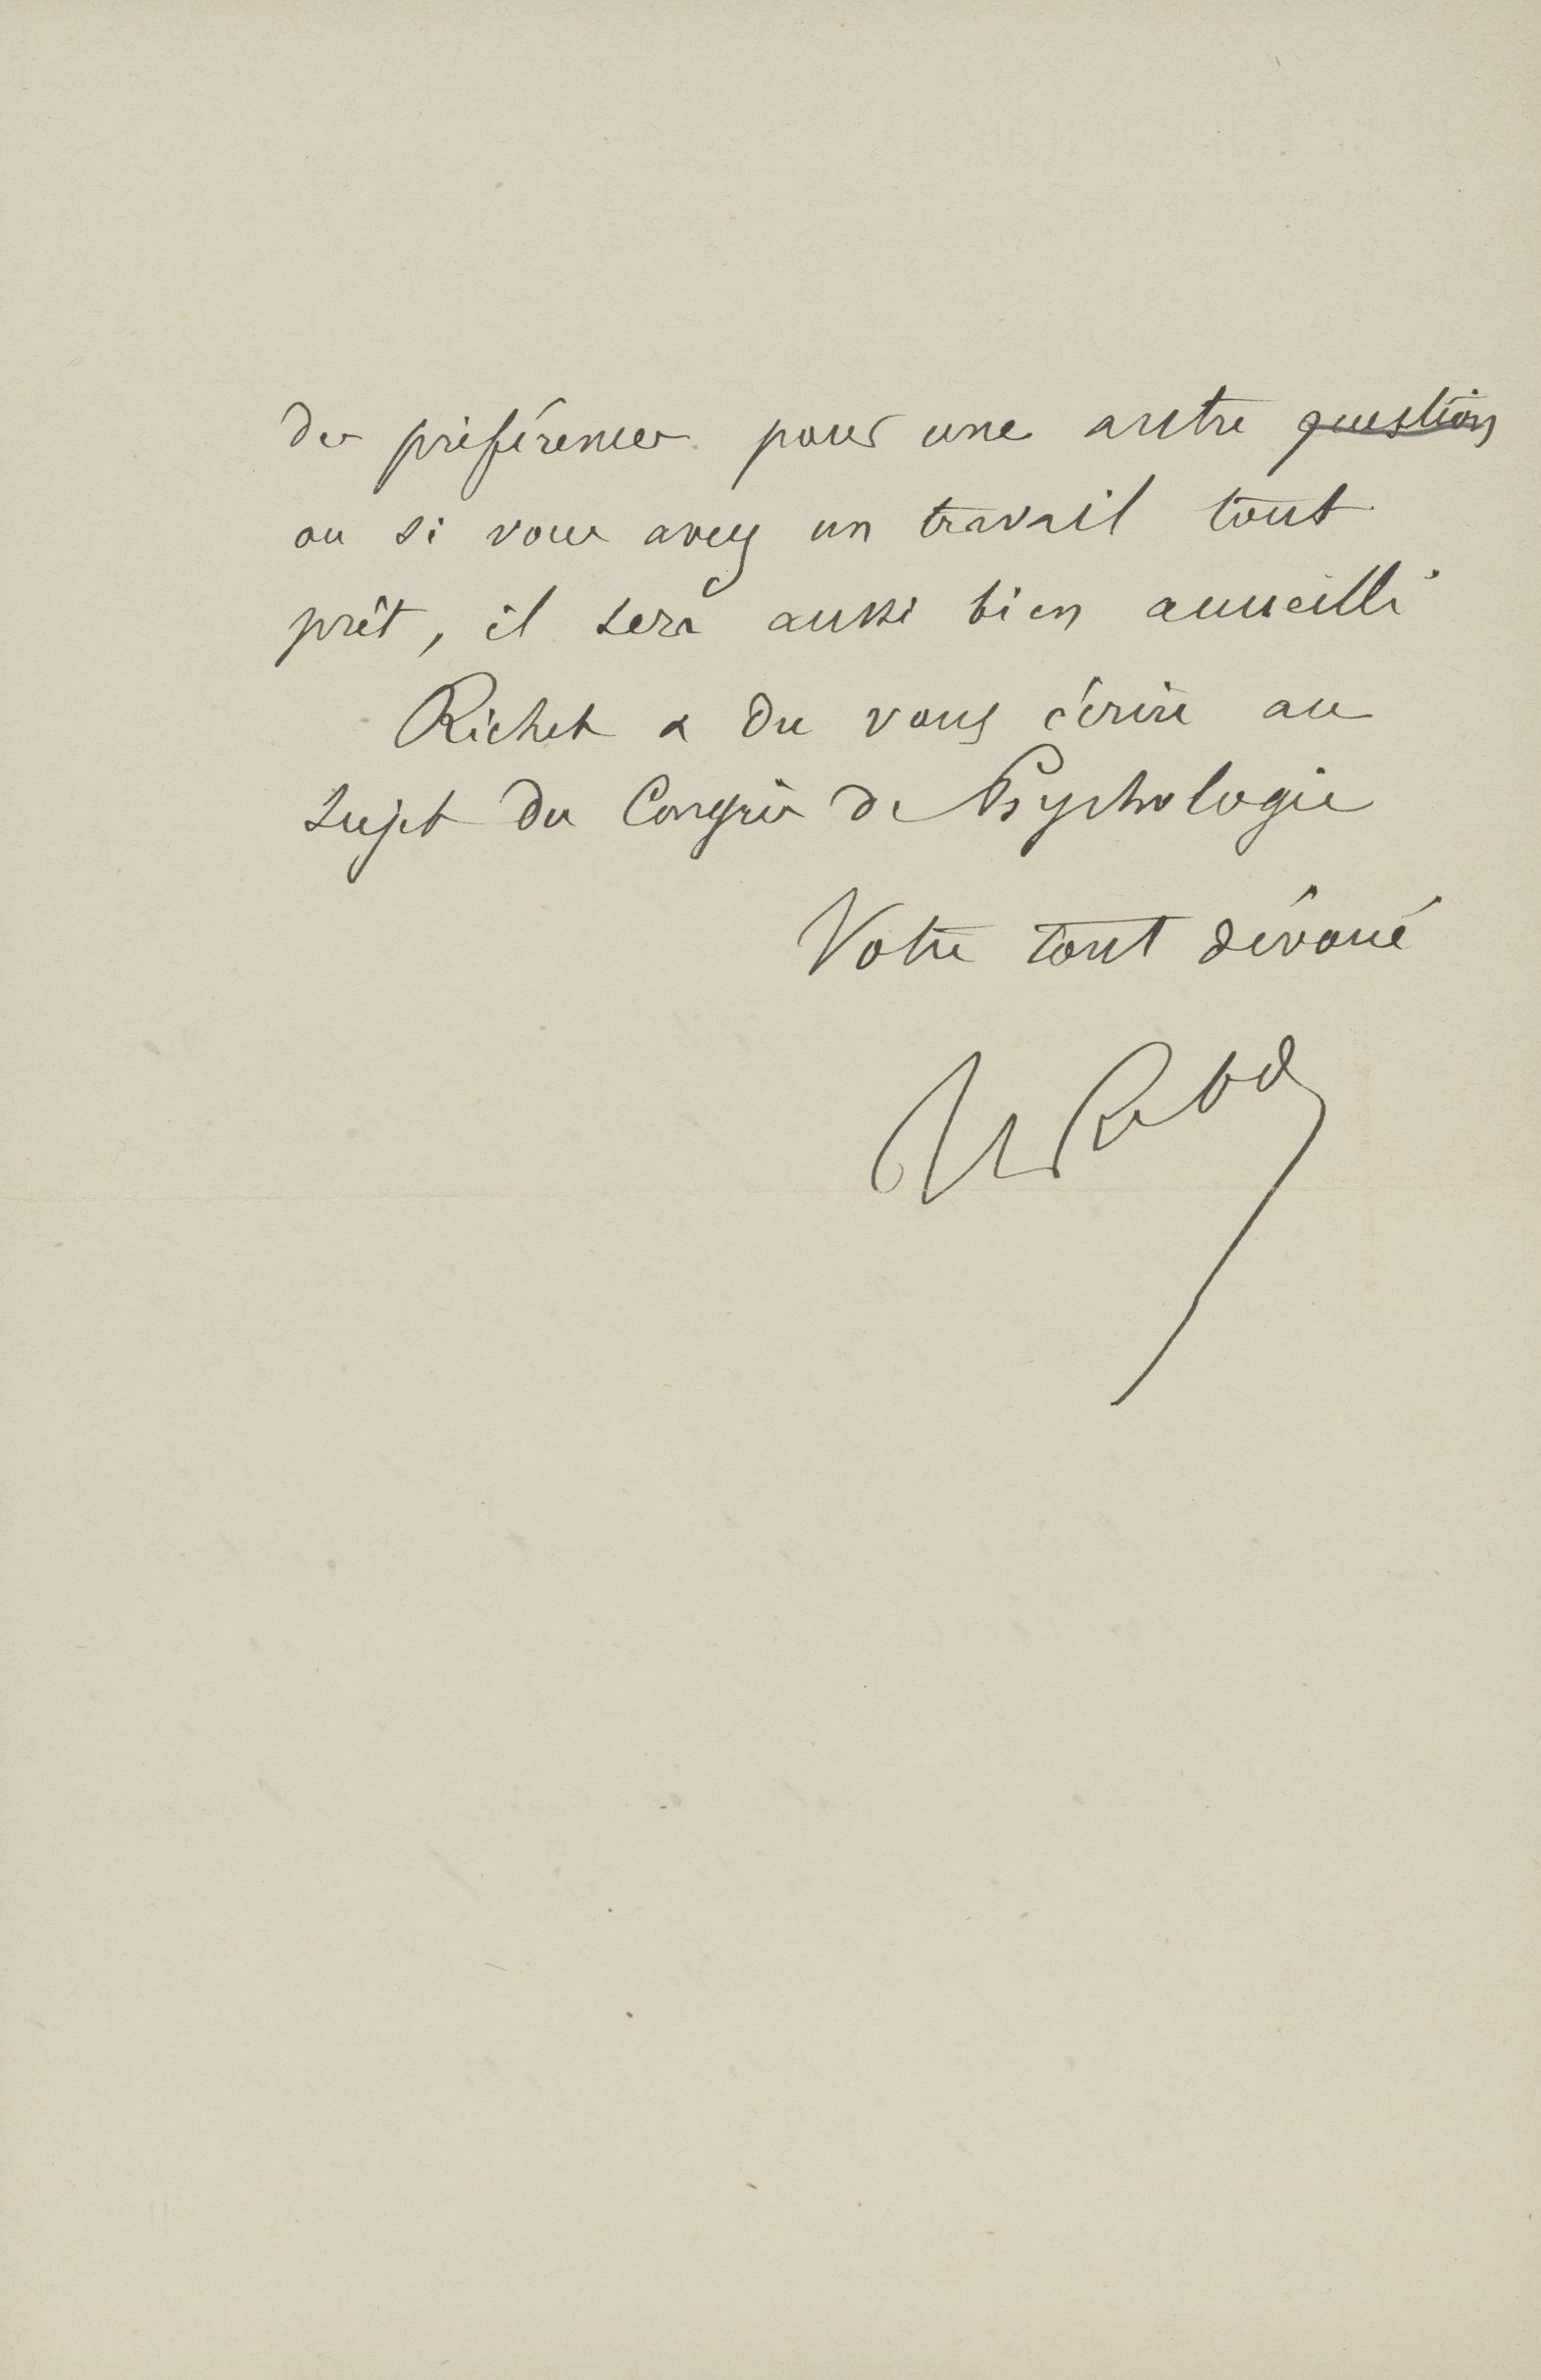 des préférences pour une autre question
ou si vous avez un travail tout
prêt, il sera aussi bien accueilli
Richet a du vous écrire au
sujet du Congrès de Psychologie
Votre tout dévoué